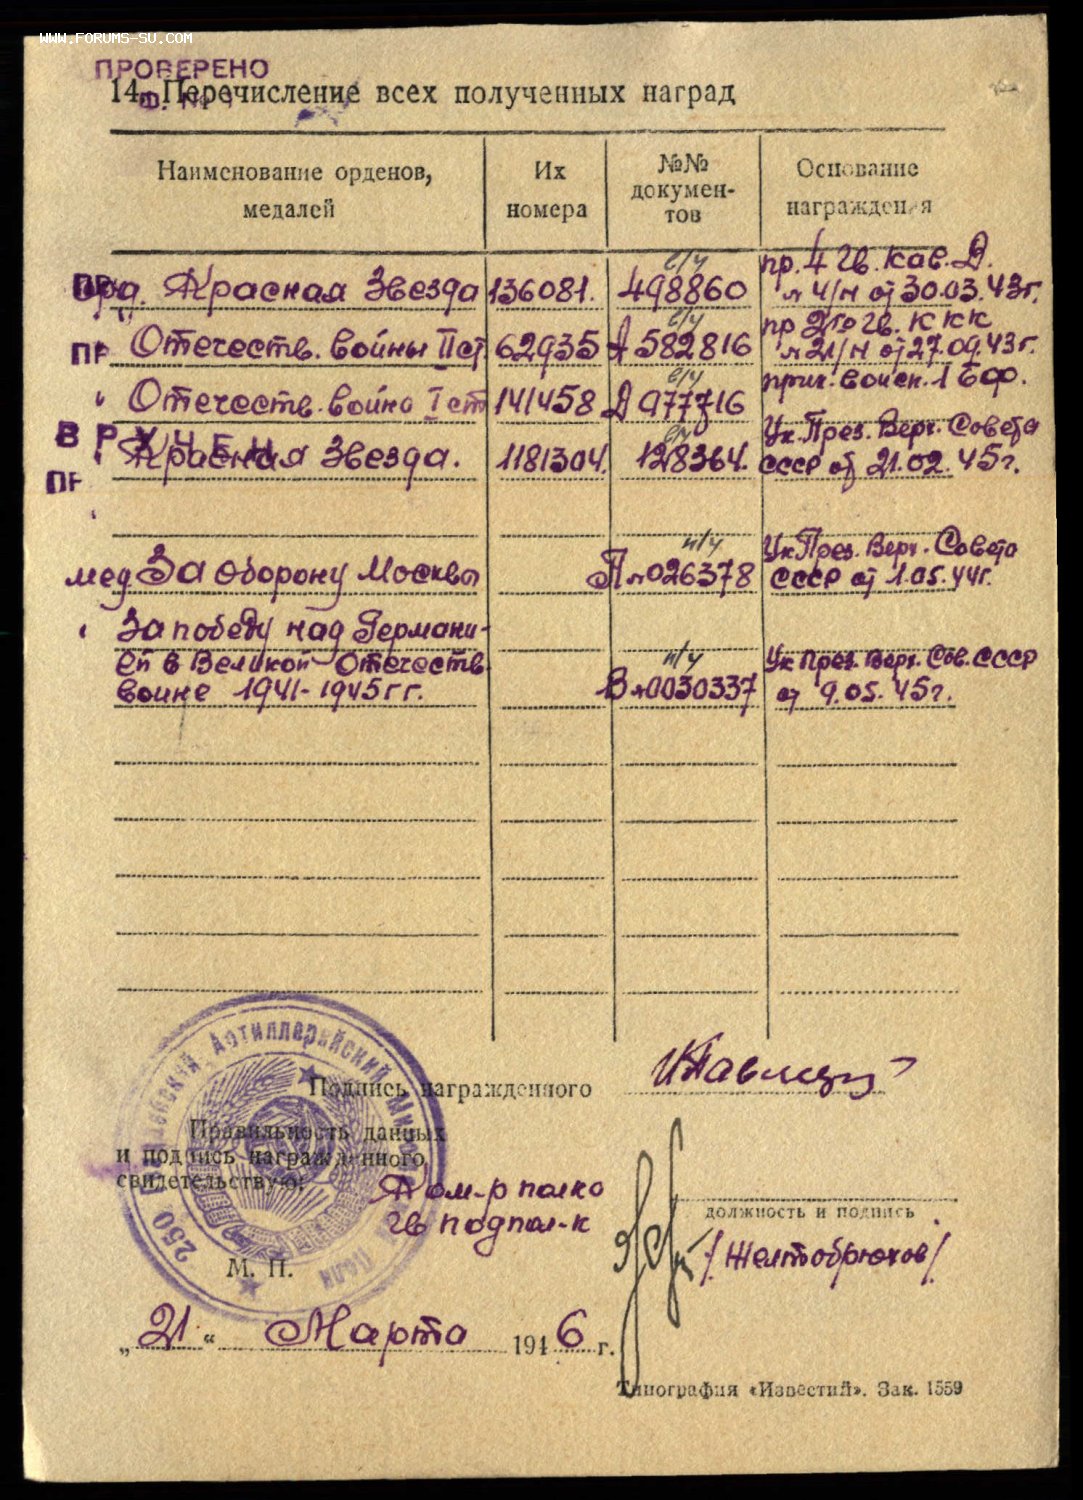 WWW.FORUMS-SU.COM
ПРОВЕРЕНО
14. Перечисление всех полученных наград
Наименование орденов, медалей
Их номера
№№ докумен-
тов
Основание награждения
Орд. Красная Звезда 136081. в/ч 498860 пр. 4 Гв. Кав. Д.
№ 4/н от 30.03.43г.
ПР
" Отечеств. войны II ст 62935 в/ч А 582816 пр 2го Гв. ККК
№ 21/н от 27.09.43г.
ПР
" Отечеств. война I ст 141458 в/ч Д 977716 прик. войск. 1 БФ.
ВРУЧЕН
" Красная Звезда. 1181304. в/ч 128364. Ук. През. Верх. Совета
СССР от 21.02.45г.
ПР
мед За оборону Москвы п/у П №026378 Ук През. Верх. Совета
СССР от 1.05.44г.
" За победу над Германи-
ей в Великой Отечеств.
войне 1941-1945гг. п/у В №0030337 Ук През. Верх. Сов. СССР
от 9.05.45г.
Подпись награжденного
Правильность данных
и подпись награжденного
свидетельствую:
Ком-р полка
гв подпол-к
должность и подпись
/Желтобрюхов/
М. П.
250 Артиллерийский
„21“ Марта 1946 г.
Типография «Известий». Зак. 1559